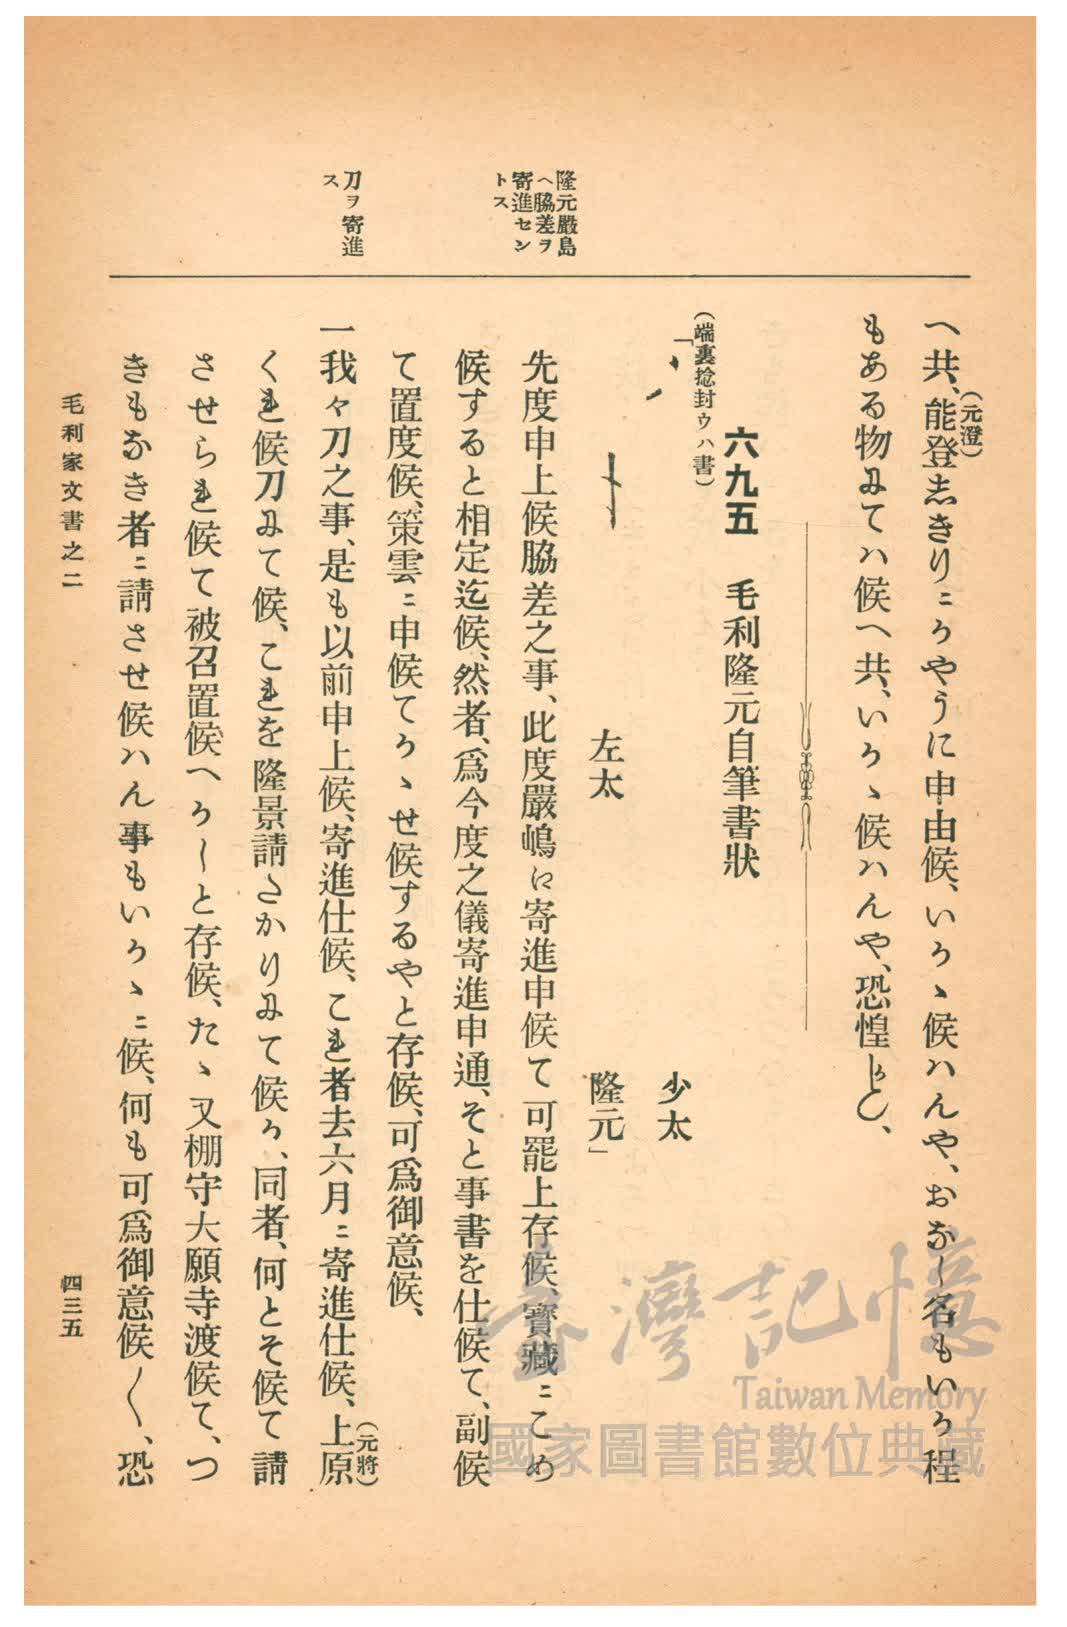 隆元嚴島
ヘ脇差ヲ
寄進セン
トス
刀ヲ寄進
ス
へ共、能登志きりニかやうに申由候、いかゝ候ハんや、おなし名もいか程
(元澄)
もある物ミてハ候へ共、いかゝ候ハんや、恐惶かしく、
六九五 毛利隆元自筆書狀
(端裏捻封ウハ書)
「
少太
左太 隆元」
先度申上候脇差之事、此度嚴嶋に寄進申候て可罷上存候、寶藏ニこめ
候すると相定迄候、然者、爲今度之儀寄進申通、そと事書を仕候て、副候
て置度候、策雲ニ申候てかゝせ候するやと存候、可爲御意候、
一我々刀之事、是も以前申上候、寄進仕候、これ者去六月ニ寄進仕候、上原
(元將)
くれ候刀ミて候、これを隆景請さかりミて候か、同者、何とそ候て請
させられ候て被召置候へかしと存候、たゝ又棚守大願寺渡候て、つ
きもなき者ニ請させ候ハん事もいかゝニ候、何も可爲御意候〱、恐
毛利家文書之二
四三五
臺灣記憶
Taiwan Memory
國家圖書館數位典藏